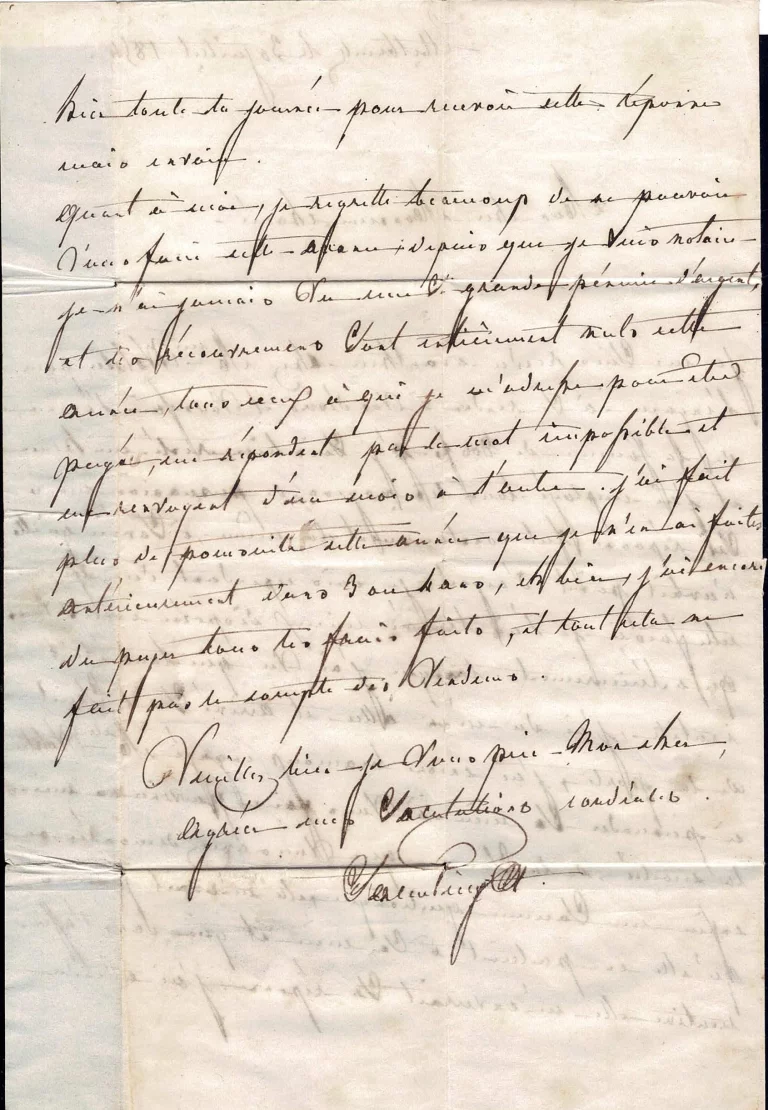 hier toute la journée pour recevoir cette réponse
mais en vain.
Quant à moi, je regrette beaucoup de ne pouvoir
vous faire cette avance; depuis que je suis notaire
je n'ai jamais vu une Si grande pénurie d'argent,
et les recouvremens Sont entièrement nuls cette
année, tous ceux à qui je m'adresse pour être
payé, me répondent par le mot impossible et
me renvoyent d'un mois à l'autre. j'ai fait
plus de poursuites cette année que je n'en ai faites
antérieurement dans 3 ou 4 ans, eh bien, j'ai encore
du payer tous les frais faits, et tout cela ne
fait pas le compte des Vendeurs.
Veuillez bien je vous prie Mon cher,
agréer mes Salutations cordiales.